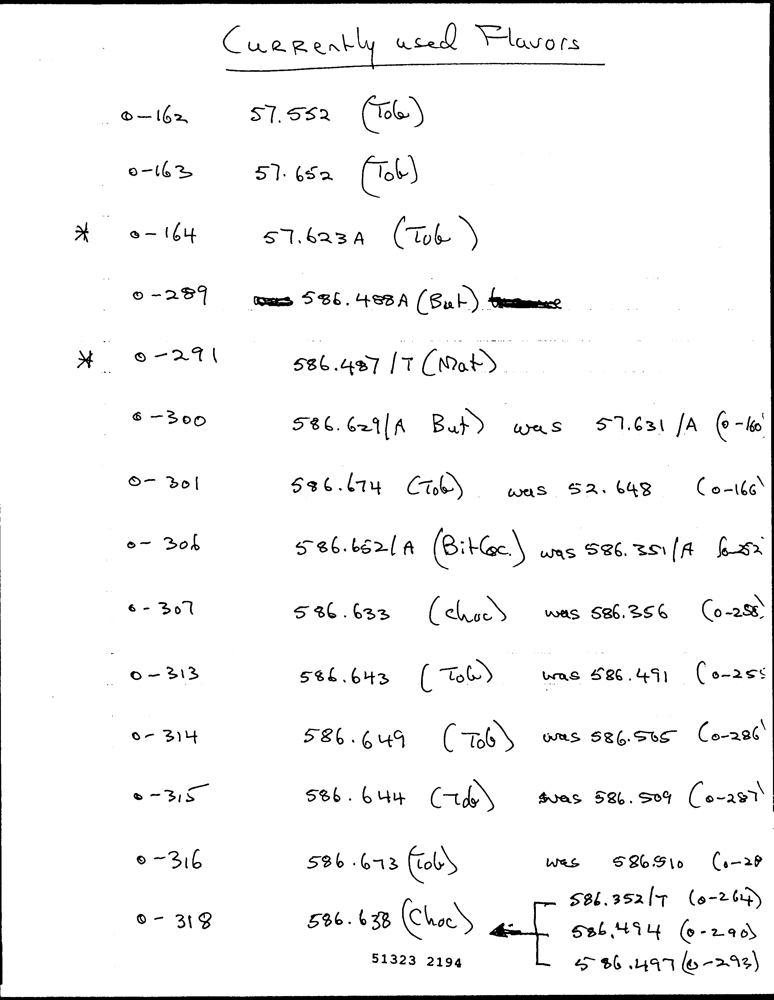 Currently used Flavors
0-162 57.552 (Tob)
0-163 57.652 (Tob)
* 0-164 57.623A (Tob)
0-289 586.488A (But)
* 0-291 586.487/T (Mat)
0-300 586.629/A But) was 57.631/A (0-160
0-301 586.674 (Tob) was 52.648 (0-166
0-306 586.652/A (Bit Coc.) was 586.351/A
0-307 586.633 (choc) was 586.356 (0-258)
0-313 586.643 (Tob) was 586.491 (0-255
0-314 586.649 (Tob) was 586.505 (0-286
0-315 586.644 (Tob) was 586.509 (0-287
0-316 586.673 (Tob) was 586.510 (0-28
586.352/T (0-264)
0-318 586.638 (Choc) 586.494 (0-290)
586.497 (0-293)
51323 2194